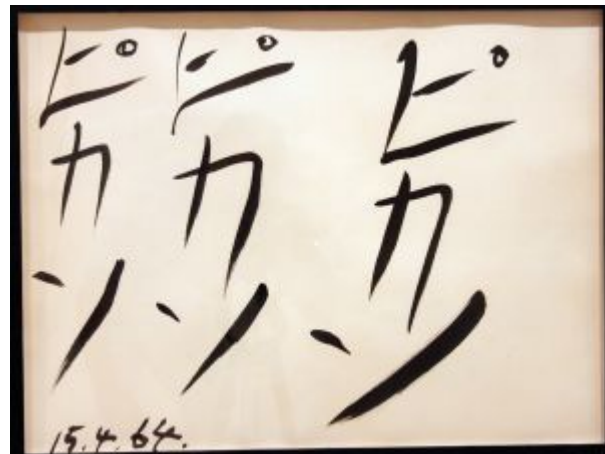 ピカソ
ピカソ
ピカソ
15.4.64.